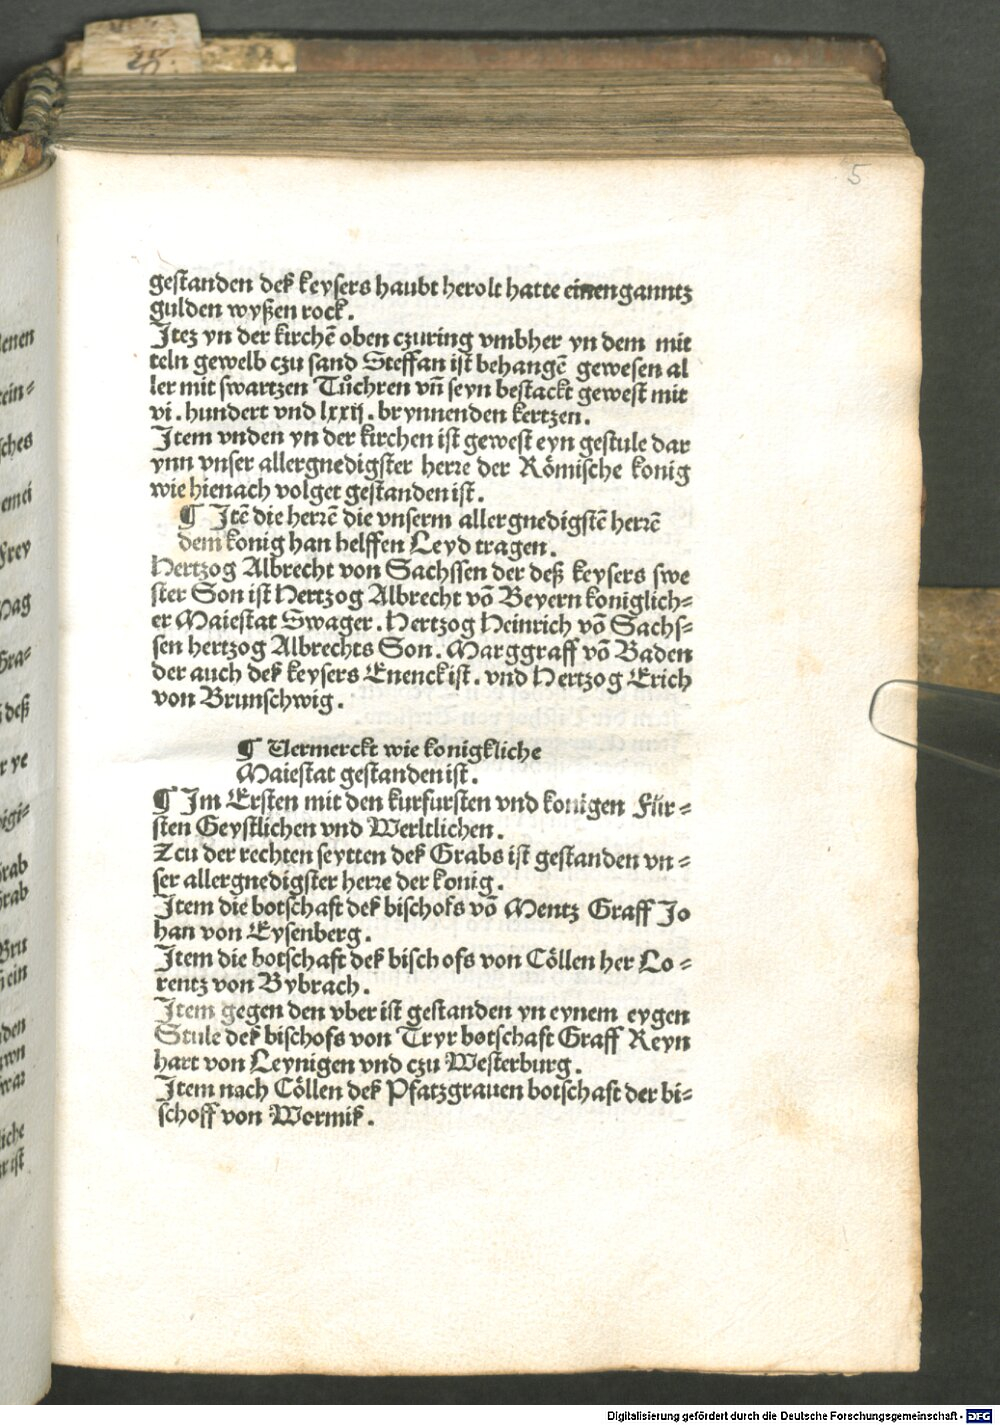 5
gestanden deß keysers haubt herolt hatte einen ganntz
gulden wyßen rock.
Itez yn der kirchē oben czuring vmbher yn dem mit
teln gewelb czu sand Steffan ist behangē gewesen al
ler mit swartzen Tůchren vñ seyn bestackt gewest mit
vi. hundert vnd lxxij. brynnenden kertzen.
Item vnden yn der kirchen ist gewest eyn gestule dar
ynn vnser allergnedigster herre der Römische konig
wie hienach volget gestanden ist.
¶ Itē die herrē die vnserm allergnedigstē herrē
dem konig han helffen Leyd tragen.
Hertzog Albrecht von Sachssen der deß keysers swe
ster Son ist Hertzog Albrecht võ Beyern koniglich=
er Maiestat Swager. Hertzog Heinrich võ Sachs=
sen hertzog Albrechts Son. Marggraff võ Baden
der auch deß keysers Enenck ist. vnd Hertzog Erich
von Brunschwig.
¶ Vermerckt wie konigkliche
Maiestat gestanden ist.
¶ Im Ersten mit den kurfursten vnd konigen Für=
sten Geystlichen vnd Werltlichen.
Zcu der rechten seytten deß Grabs ist gestanden vn=
ser allergnedigster herre der konig.
Item die botschaft deß bischofs võ Mentz Graff Jo
han von Eysenberg.
Item die botschaft deß bischofs von Cöllen her Lo=
rentz von Bybrach.
Item gegen den vber ist gestanden yn eynem eygen
Stule deß bischofs von Tryr botschaft Graff Reyn
hart von Leynigen vnd czu Westerburg.
Item nach Cöllen deß Pfatzgrauen botschaft der bi=
schoff von Wormß.
Digitalisierung gefördert durch die Deutsche Forschungsgemeinschaft - DFG